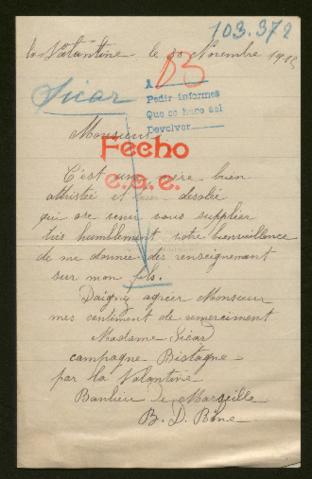 103.372
la Valantine le 30 Novembre 1915
A 03
Pedir informes
Que se hace así
Devolver
Sicar
Monsieur
Fecho
e.g.e.
C'est une mère bien
attristée et bien desolée
qui ose venir vous supplier
très humblement votre bienveillence
de me donner des renseignement
sur mon fils.
Daigné agréer Monsieur
mes sentiment de remerciment
Madame Sicar
campagne Bistagne
par la Valantine
Banlieu de Marseille
B. D. Rône